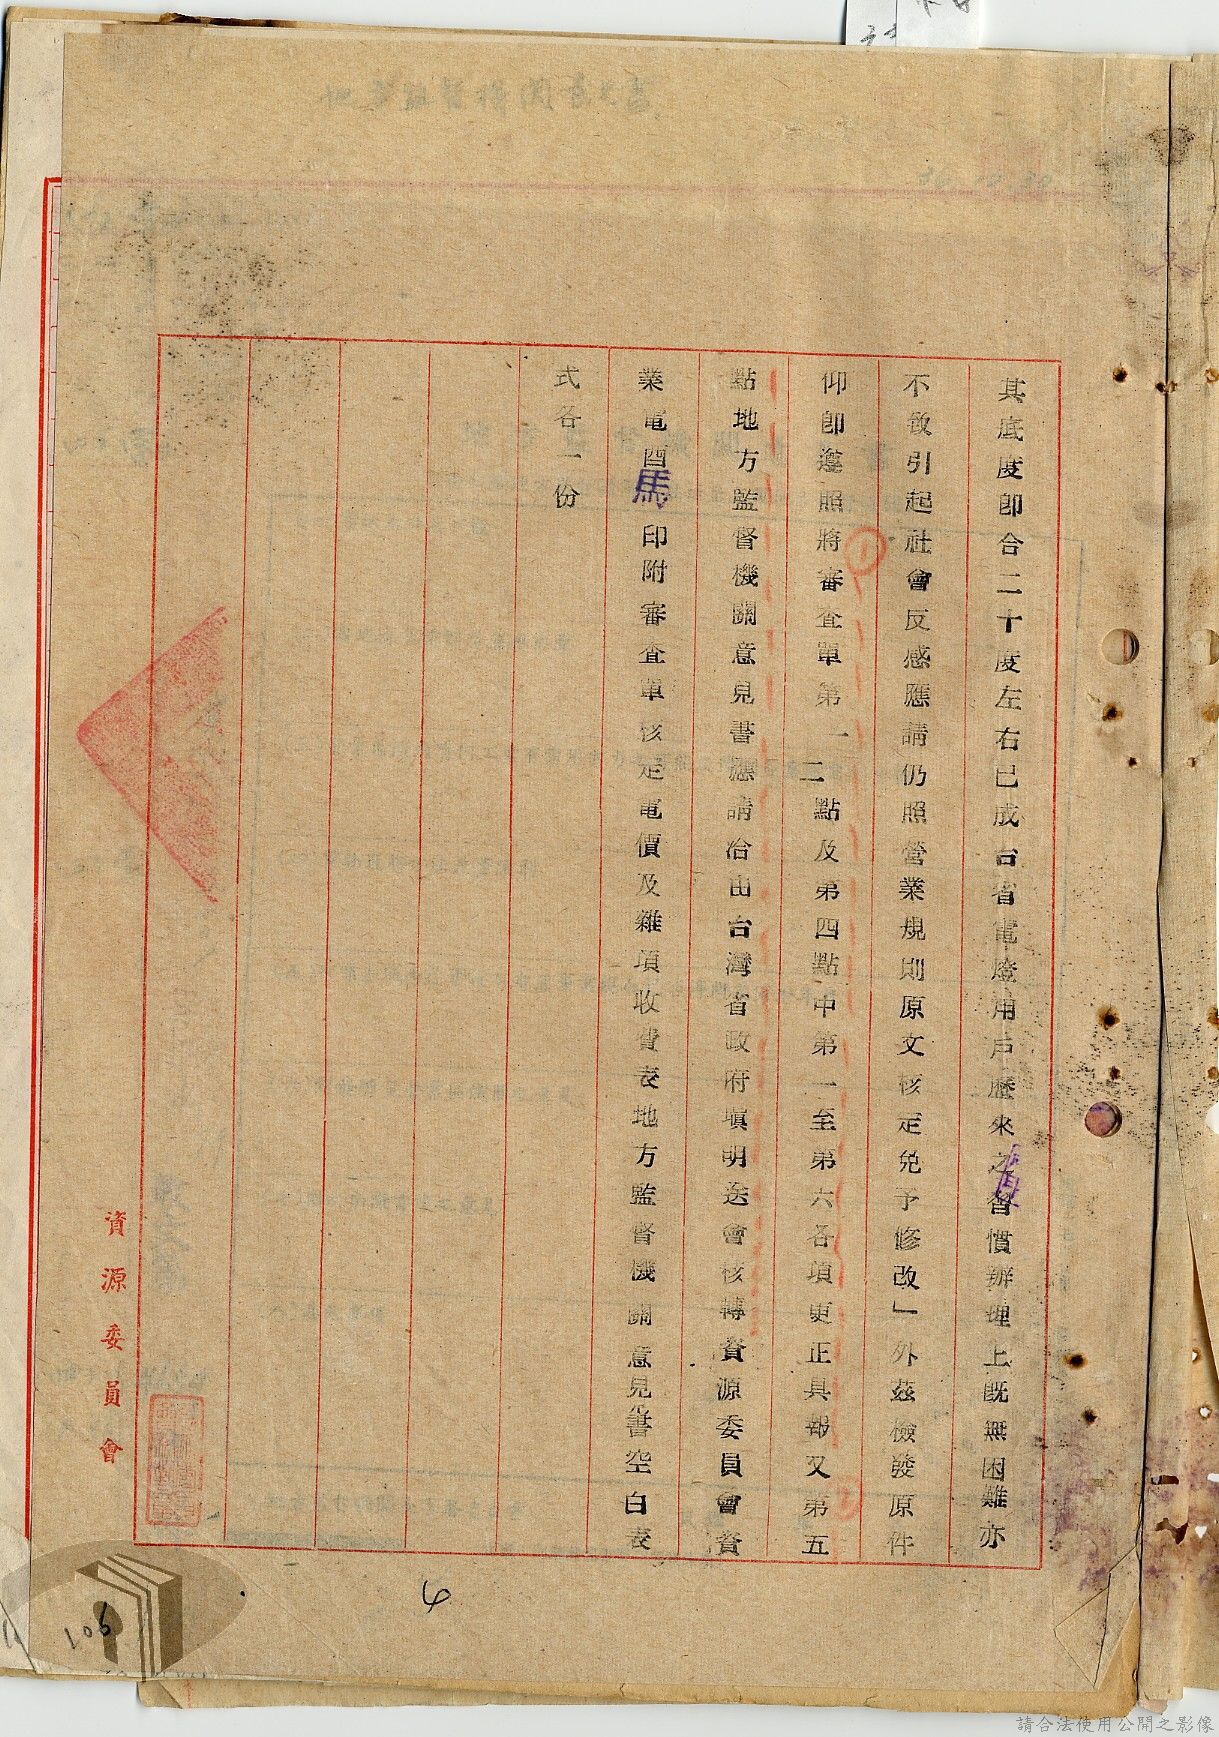 其底度卽合二十度左右已成台省電燈用戶歷來之習慣辦理上旣無困難亦
不致引起社會反感應請仍照營業規則原文核定免予修改」外茲檢發原件
仰卽遵照將審查單第一二點及第四點中第一至第六各項更正具報又第五
點地方監督機關意見書應請洽由台灣省政府塡明送會核轉資源委員會資
業電酉馬印附審查單核定電價及雜項收費表地方監督機關意見書空白表
式各一份
資源委員會
4
106
請合法使用公開之影像